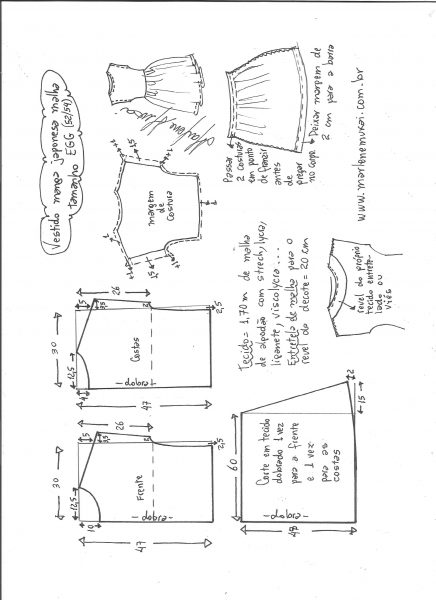 Vestido manga japonesa malha
tamanho EGG (52/54)
30
12,5
10
26
Frente
dobra
47
2,5
30
12,5
26
Costas
dobra
47
2,5
margem
de
costura
Passar
2 costuras
em ponto
de franzir
antes
de
pregar
no corpo.
Deixar margem de
2 cm para a barra
Tecido= 1,70m de malha
de algodão com strech, lycra,
liganete, viscolycra ...
Entretela de malha para o
revel do decote = 20 cm
www.marlenemukai.com.br
60
Corte em tecido
dobrado 1 vez
para a frente
e 1 vez
para as
costas
dobra
48
15
2
revel do próprio
tecido entrete-
lado ou
viés